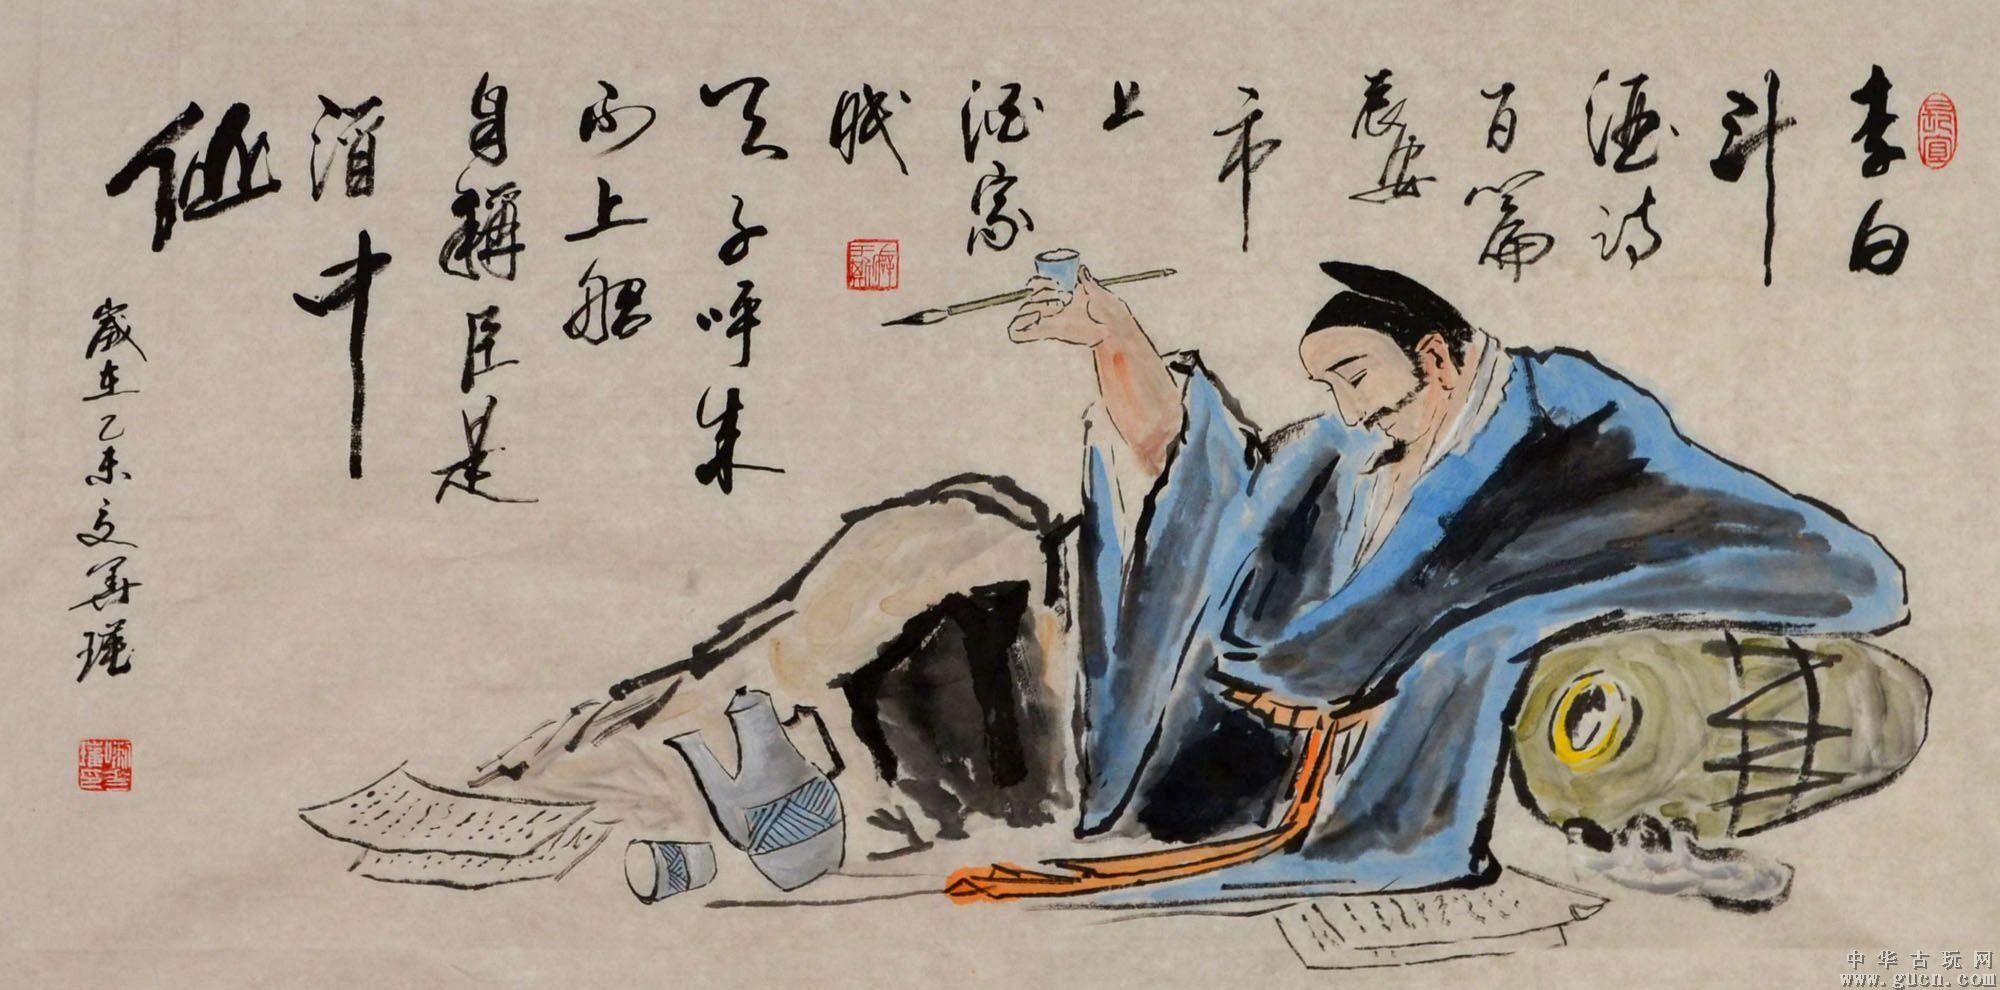 李白
斗
酒诗
百篇
長安
市
上
酒家
眠
天子呼来
不上船
自稱臣是
酒中
仙
歲在乙未
中华古玩网
www.gucn.com